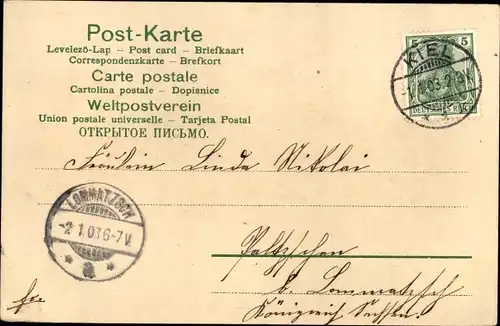 Post-Karte
Levelező-Lap – Post card – Briefkaart
Correspondenzkarte – Brefkort
Carte postale
Cartolina postale – Dopisnice
Weltpostverein
Union postale universelle – Tarjeta Postal
ОТКРЫТОЕ ПИСЬМО.
5 5
KIEL
1.03.2-3
DEUTSCHES REICH
Fräulein Linda Nikolai
LOMMATZSCH
-2.1.03.6-7V.
Paltzschen
b. Lommatzsch
Königreich Sachsen.
fr.